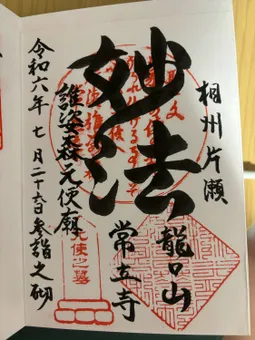 相州片瀬
龍口山
常立寺
妙法
誰姿森元使廟
令和六年七月二十六日参詣之砌
元使之墓